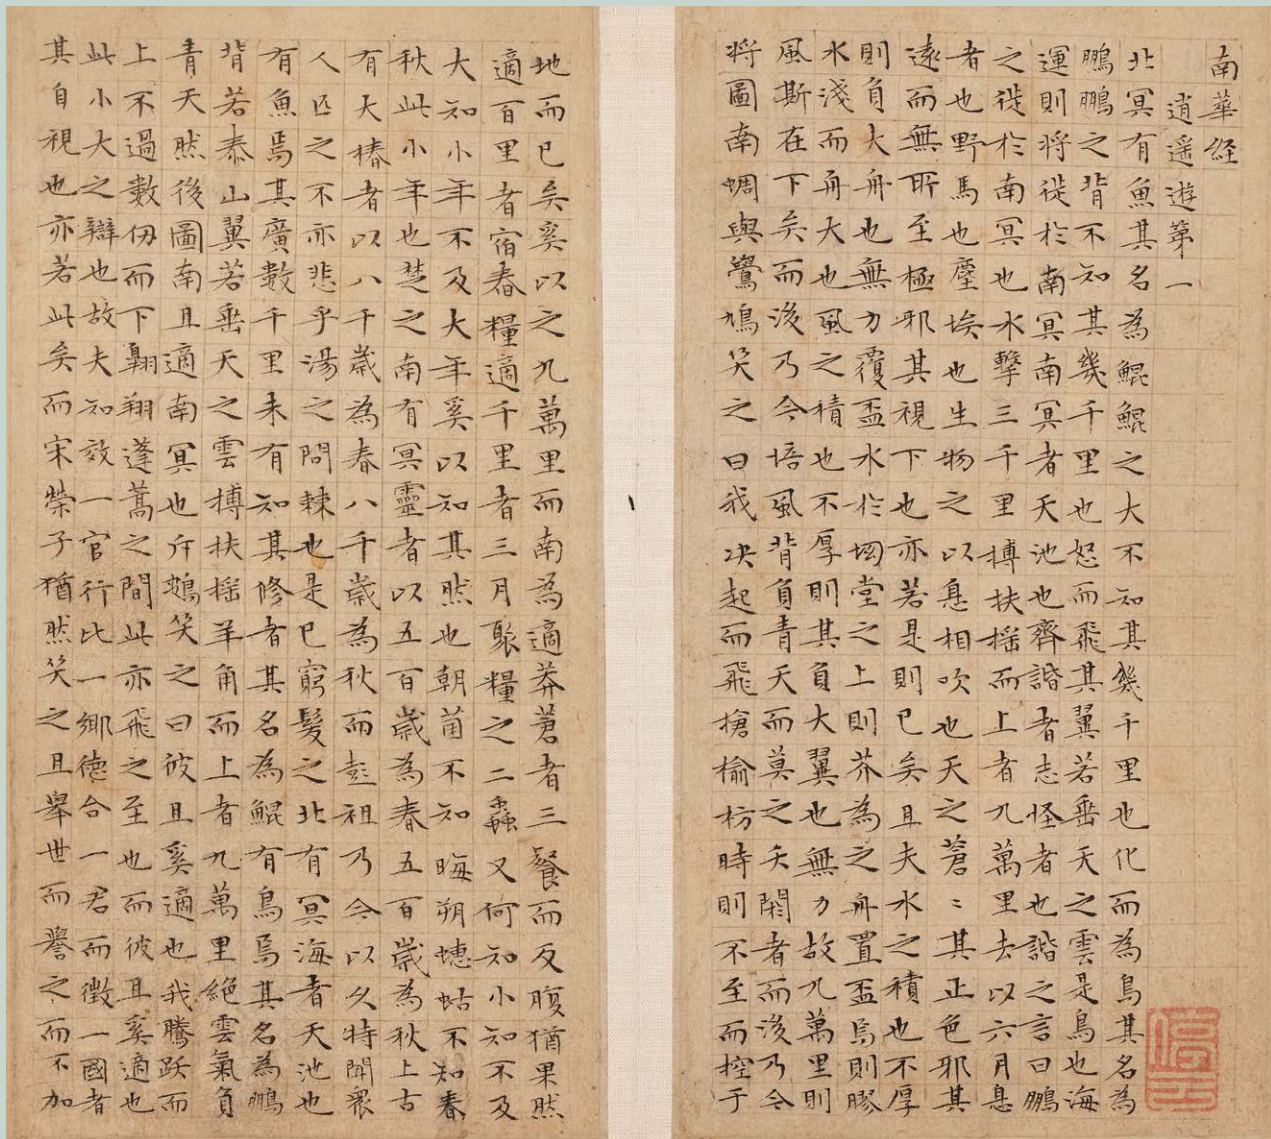 南華経
逍遥遊第一
北冥有魚其名為鯤鯤之大不知其幾千里也化而為鳥其名為
鵬鵬之背不知其幾千里也怒而飛其翼若垂天之雲是鳥也海
運則将徙於南冥南冥者天池也齊諧者志怪者也諧之言曰鵬
之徙於南冥也水擊三千里搏扶揺而上者九萬里去以六月息
者也野馬也塵埃也生物之以息相吹也天之蒼〻其正色邪其
遠而無所至極邪其視下也亦若是則已矣且夫水之積也不厚
則負大舟也無力覆盃水於坳堂之上則芥為之舟置盃焉則膠
水淺而舟大也風之積也不厚則其負大翼也無力故九萬里則
風斯在下矣而後乃今培風背負青天而莫之夭閼者而後乃今
将圖南蜩與鷽鳩笑之曰我决起而飛搶榆枋時則不至而控于
地而已矣奚以之九萬里而南為適莽蒼者三餐而反腹猶果然
適百里者宿舂糧適千里者三月聚糧之二蟲又何知小知不及
大知小年不及大年奚以知其然也朝菌不知晦朔蟪蛄不知春
秋此小年也楚之南有冥靈者以五百歲為春五百歲為秋上古
有大椿者以八千歲為春八千歲為秋而彭祖乃今以久特聞衆
人匹之不亦悲乎湯之問棘也是已窮髮之北有冥海者天池也
有魚焉其廣數千里未有知其修者其名為鯤有鳥焉其名為鵬
背若泰山翼若垂天之雲搏扶揺羊角而上者九萬里絶雲氣負
青天然後圖南且適南冥也斥鴳笑之曰彼且奚適也我騰躍而
上不過數仞而下翱翔蓬蒿之間此亦飛之至也而彼且奚適也
此小大之辯也故夫知效一官行比一鄉德合一君而徴一國者
其自視也亦若此矣而宋榮子猶然笑之且舉世而譽之而不加